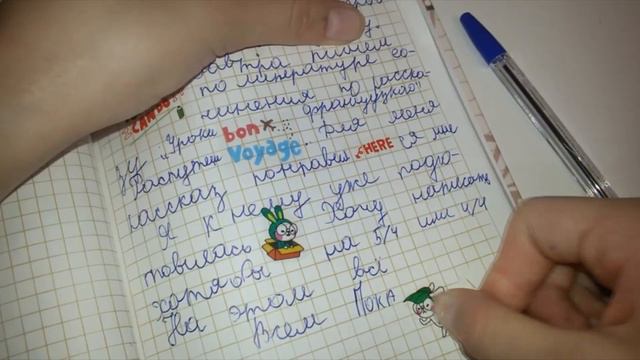 завтра пишем
по литературе со-
чинения по расска-
зу "Уроки французского"
Распутин Для меня
рассказ понравился мне
Я к нему уже подго-
товилась Хочу написать
хотябы на 5/4 или 4/4
На этом всі
Всем Пока
CANDY
bon
Voyage
HERE